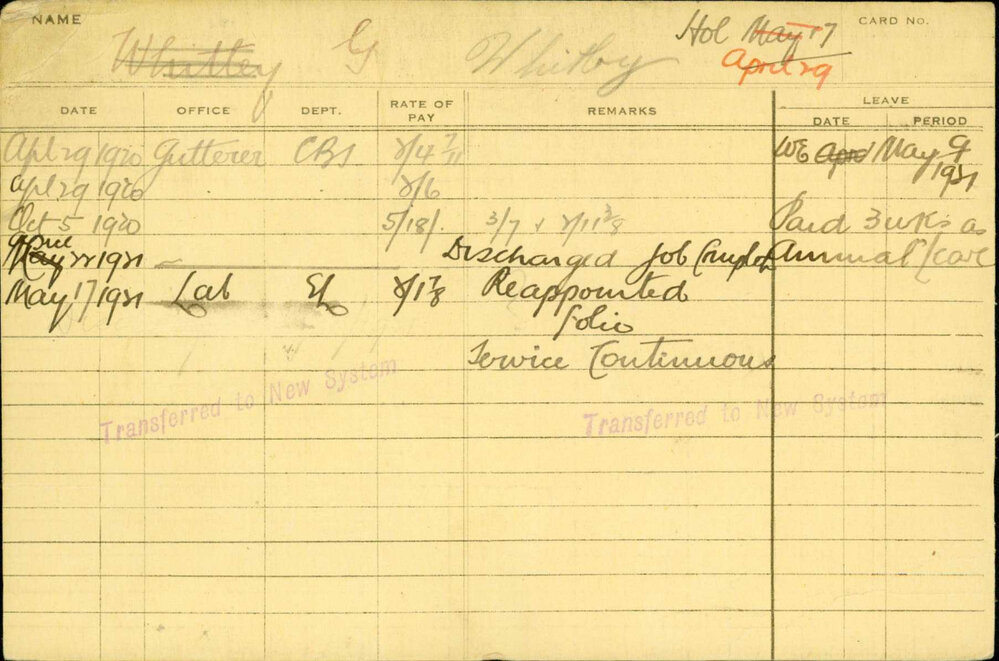 NAME Hol May 17 CARD No.
Whitley G Whitby April 29
LEAVE
DATE OFFICE DEPT. RATE OF PAY REMARKS DATE PERIOD
Apl 29 1920 Gutterer CBs 2/4 7/11 WE Apr May 9 1921
Apl 29 1920 2/6
Oct 5 1920 5/18/. 3/7 + 2/11 3/8 Paid 3 wks as
April
May 22 1921 Discharged Job Complete Annual leave
May 17 1921 Lab 2/1 7/8 Reappointed
folio
Service Continuous
Transferred to New System Transferred to New System